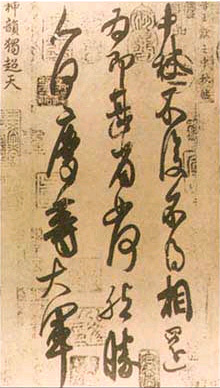 王獻之中秋帖
中秋不復不得相還
為即甚省如何然勝
人何慶等大軍
神韻獨超天